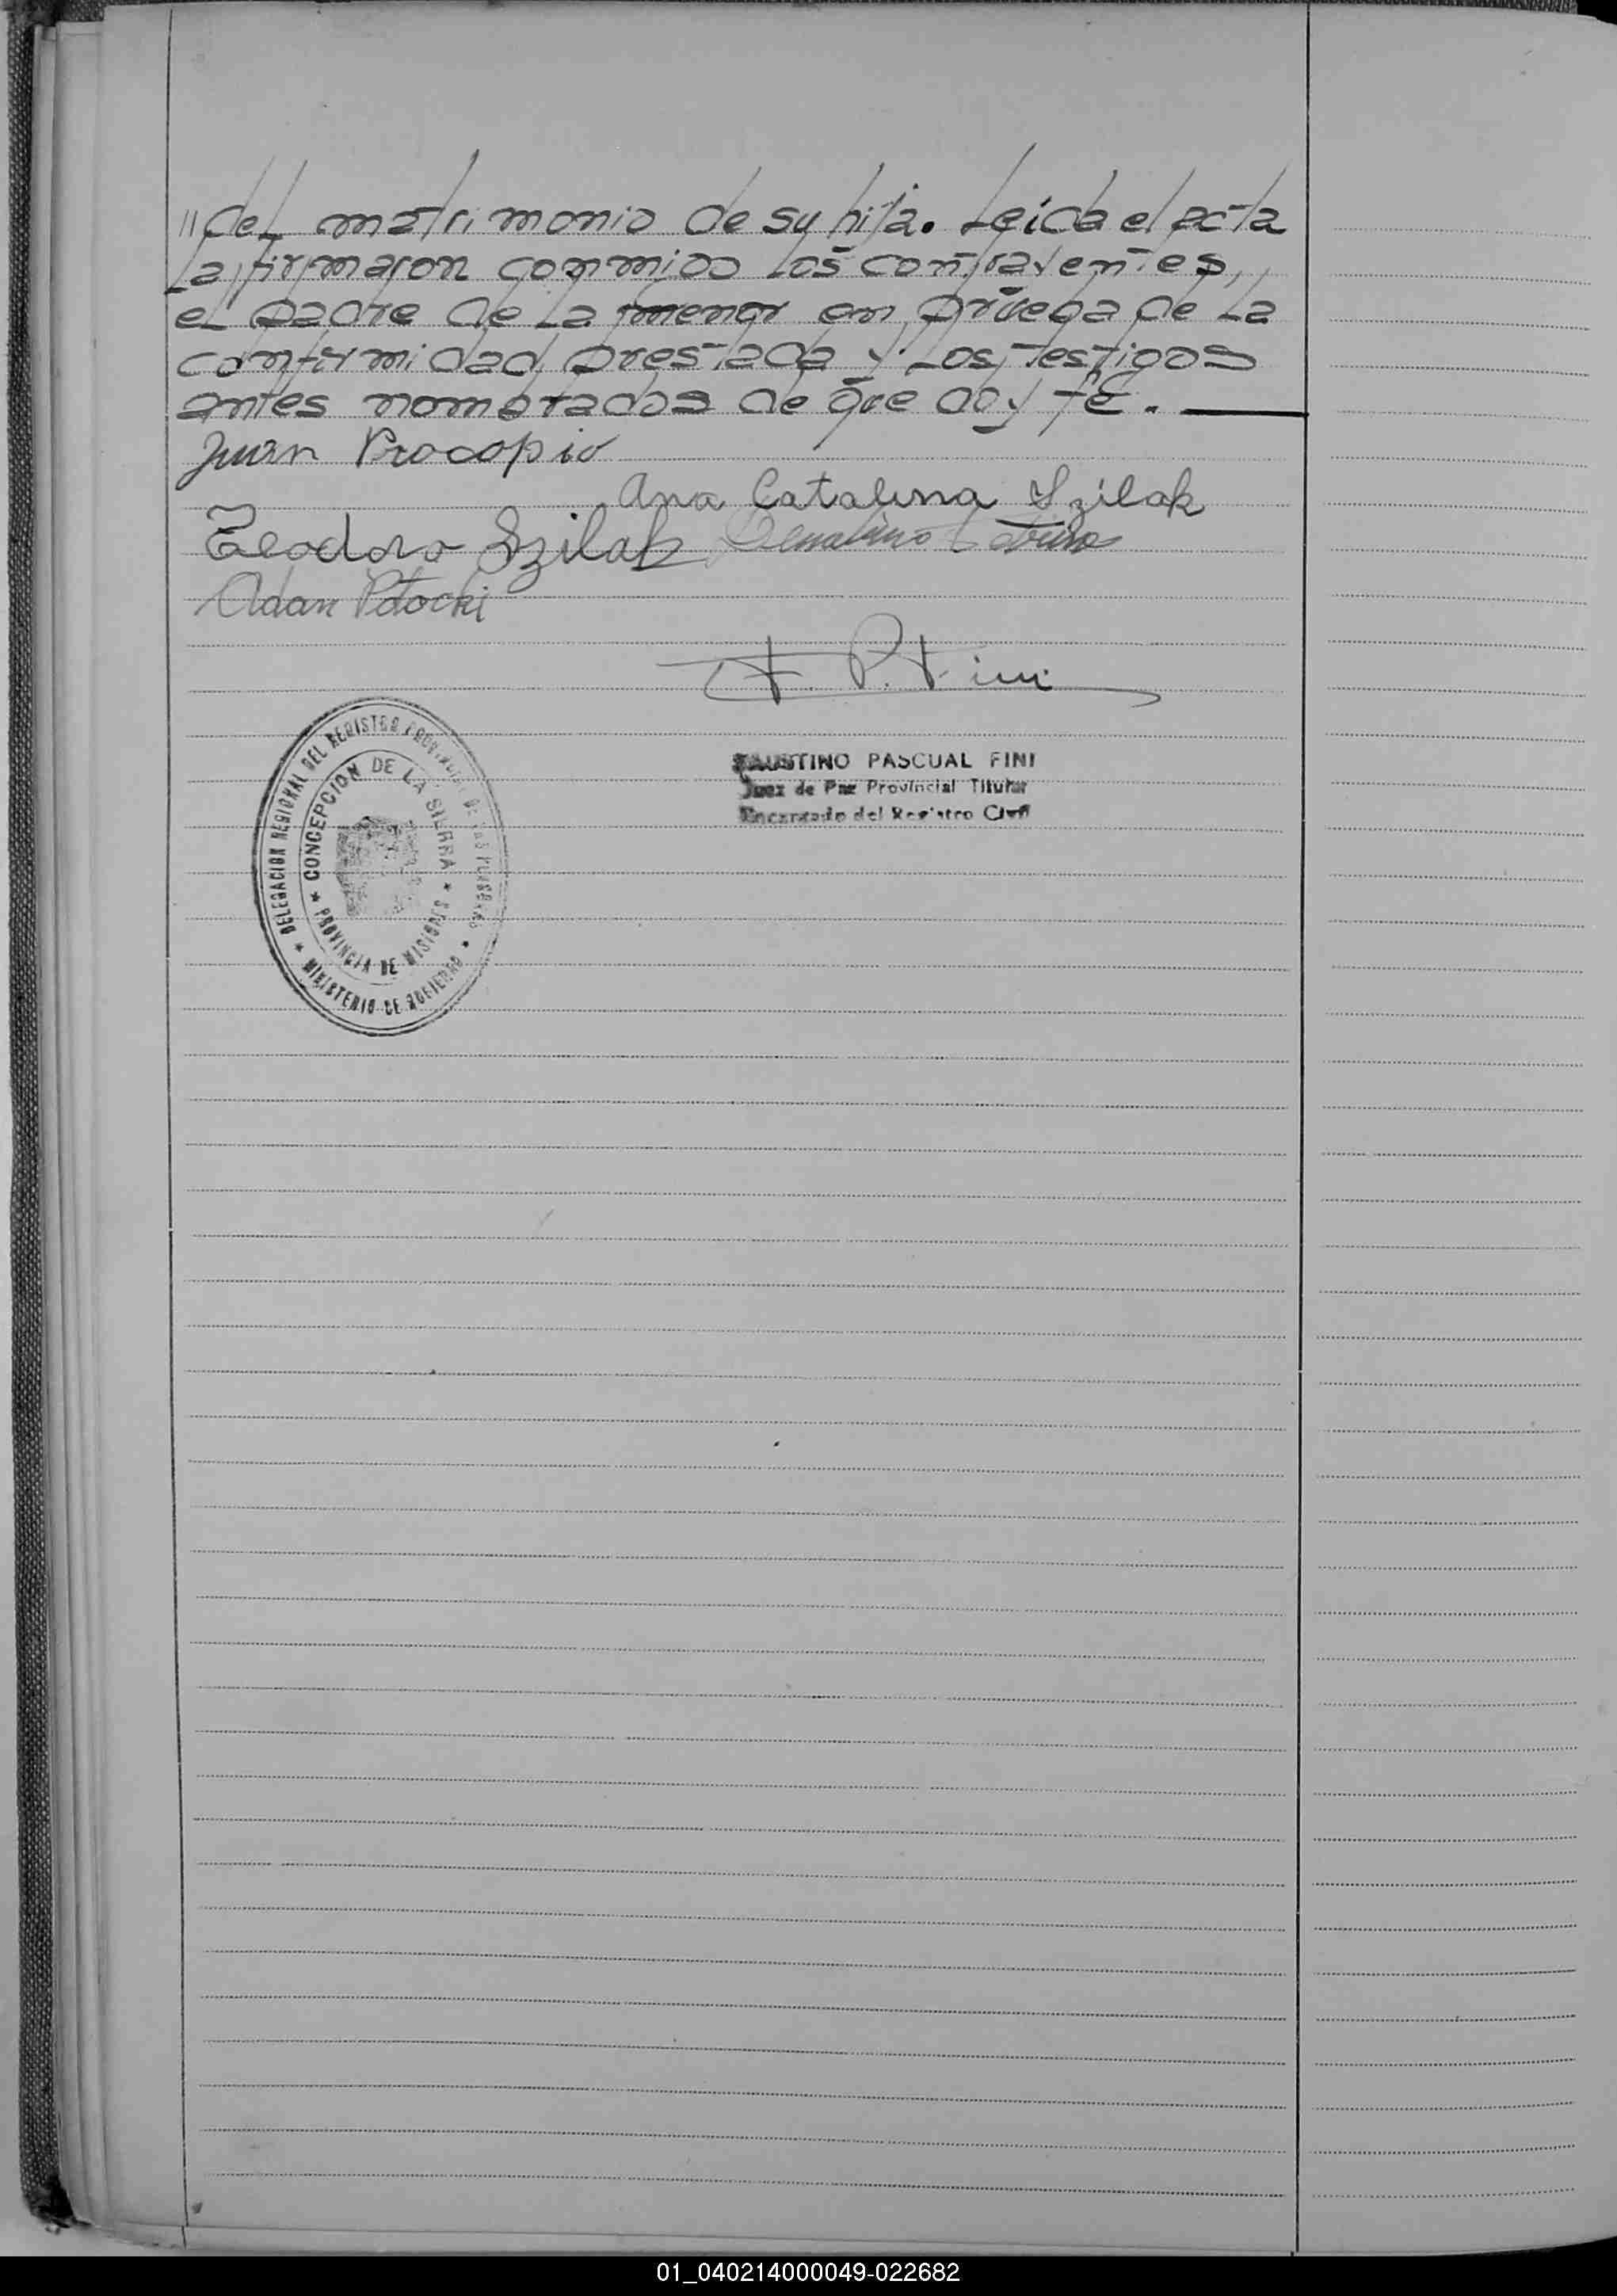 "del matrimonio de su hija. Leida el acta
la firmaron conmigo los contrayentes,
el padre de la menor en prueba de la
conformidad prestada y los testigos
antes nombrados de que doy fé.
Juan Procopio
Ana Catalina Szilak
Teodoro Szilak
Adan Potocki
F. P. Fini
FAUSTINO PASCUAL FINI
Juez de Paz Provincial Titular
Encargado del Registro Civil
DELEGACION REGIONAL DEL REGISTRO PROVINCIAL DE LAS PERSONAS
* MINISTERIO DE GOBIERNO *
CONCEPCION DE LA SIERRA
* PROVINCIA DE MISIONES *
01_040214000049-022682